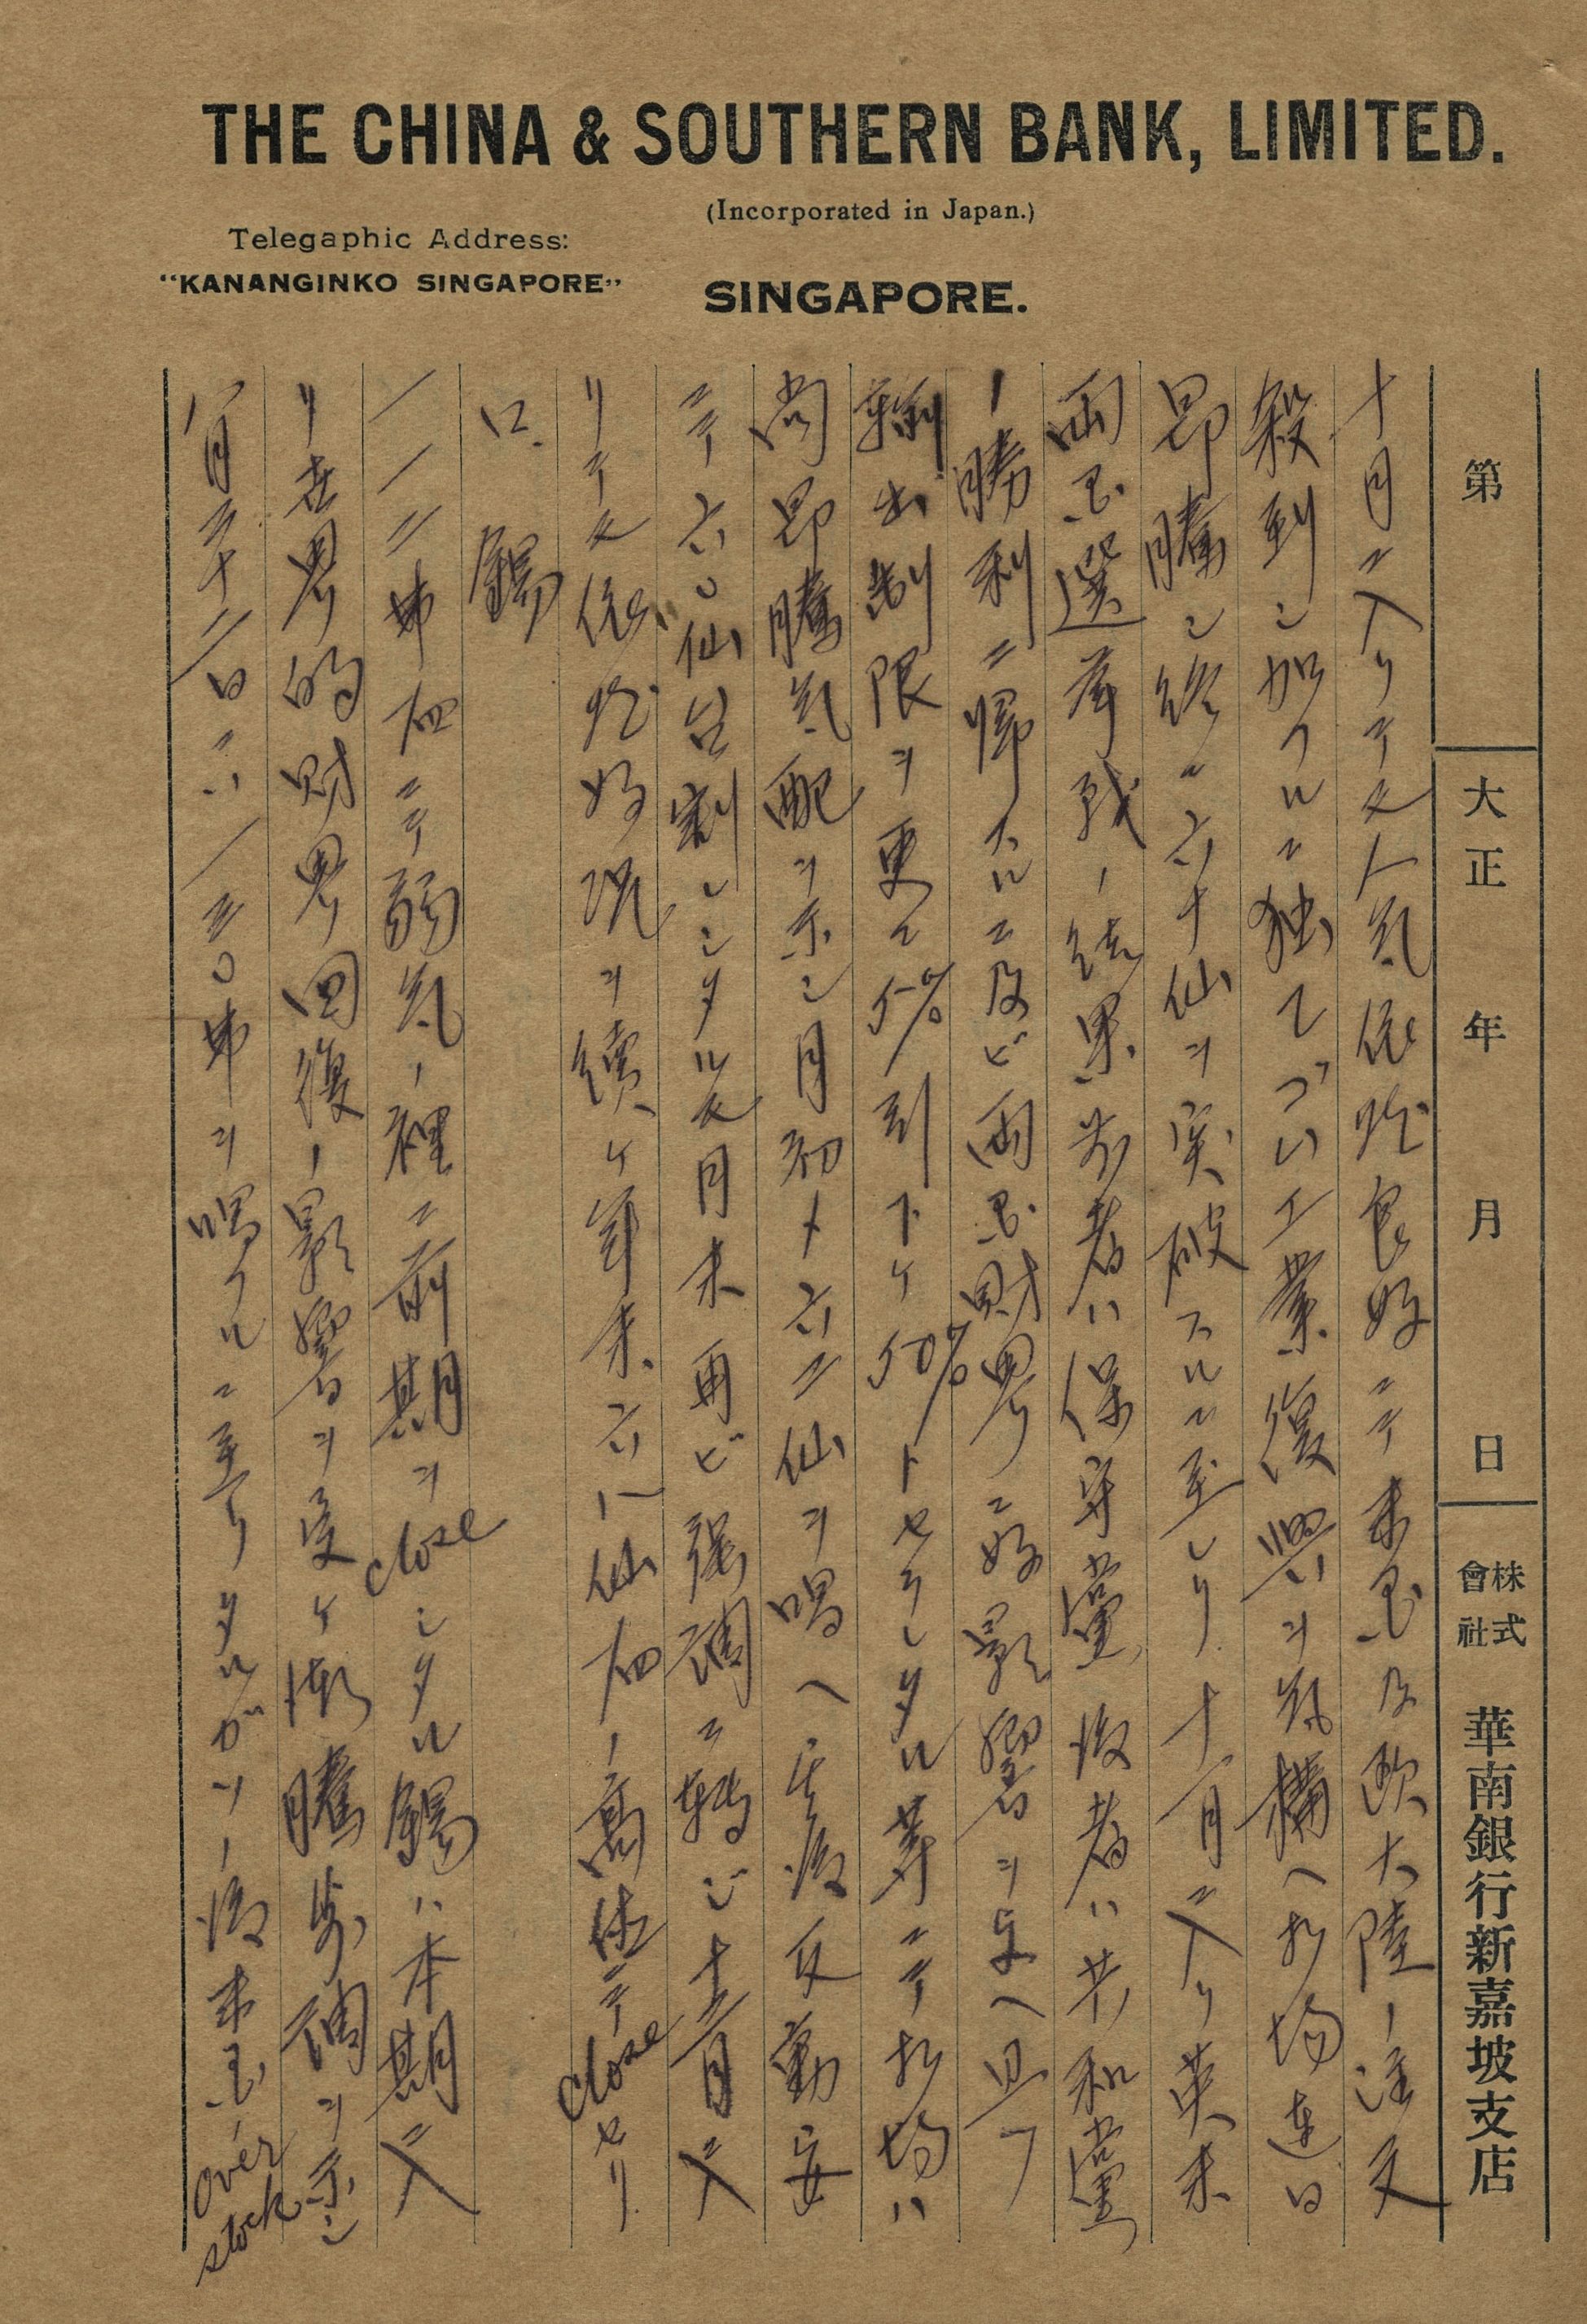 THE CHINA & SOUTHERN BANK, LIMITED.
(Incorporated in Japan.)
Telegaphic Address:
"KANANGINKO SINGAPORE"
SINGAPORE.
第 大正 年 月 日 株式會社 華南銀行新嘉坡支店
十月ニ入リテモ人気依然良好ニテ米国及欧大陸ノ注文
殺到シ加フルニ独乙ゴム工業復興ヲ気構ヘ相場連日
昂騰シ終ニ六十仙ヲ突破スルニ至レリ十一月ニ入リ英米
両国選挙戦ノ結果前者ハ保守党後者ハ共和党
ノ勝利ニ帰スルニ及ビ両国財界ニ好影響ヲ与ヘ且フ
輸出制限ヲ更ニ5%引下ケ50%トセラレタル等ニテ相場ハ
尚昂騰気配ヲ示シ月初メ六二仙ヲ唱ヘ其後反動安
ニテ六〇仙台割レシタルモ月末再ビ強調ニ転ジ十二月ニ入
リテモ依然好況ヲ続ケ年末六八仙াノ高値ニテcloseセリ
ロ. 錫
一一二弗ニテ弱気ノ裡ニ前期ヲcloseシタル錫ハ本期ニ入
リ世界的財界回復ノ影響ヲ受ケ漸騰歩調ヲ示シ
一月三十二日ニハ一三〇弗ヲ唱フルニ至リタルガソノ後米国over stock